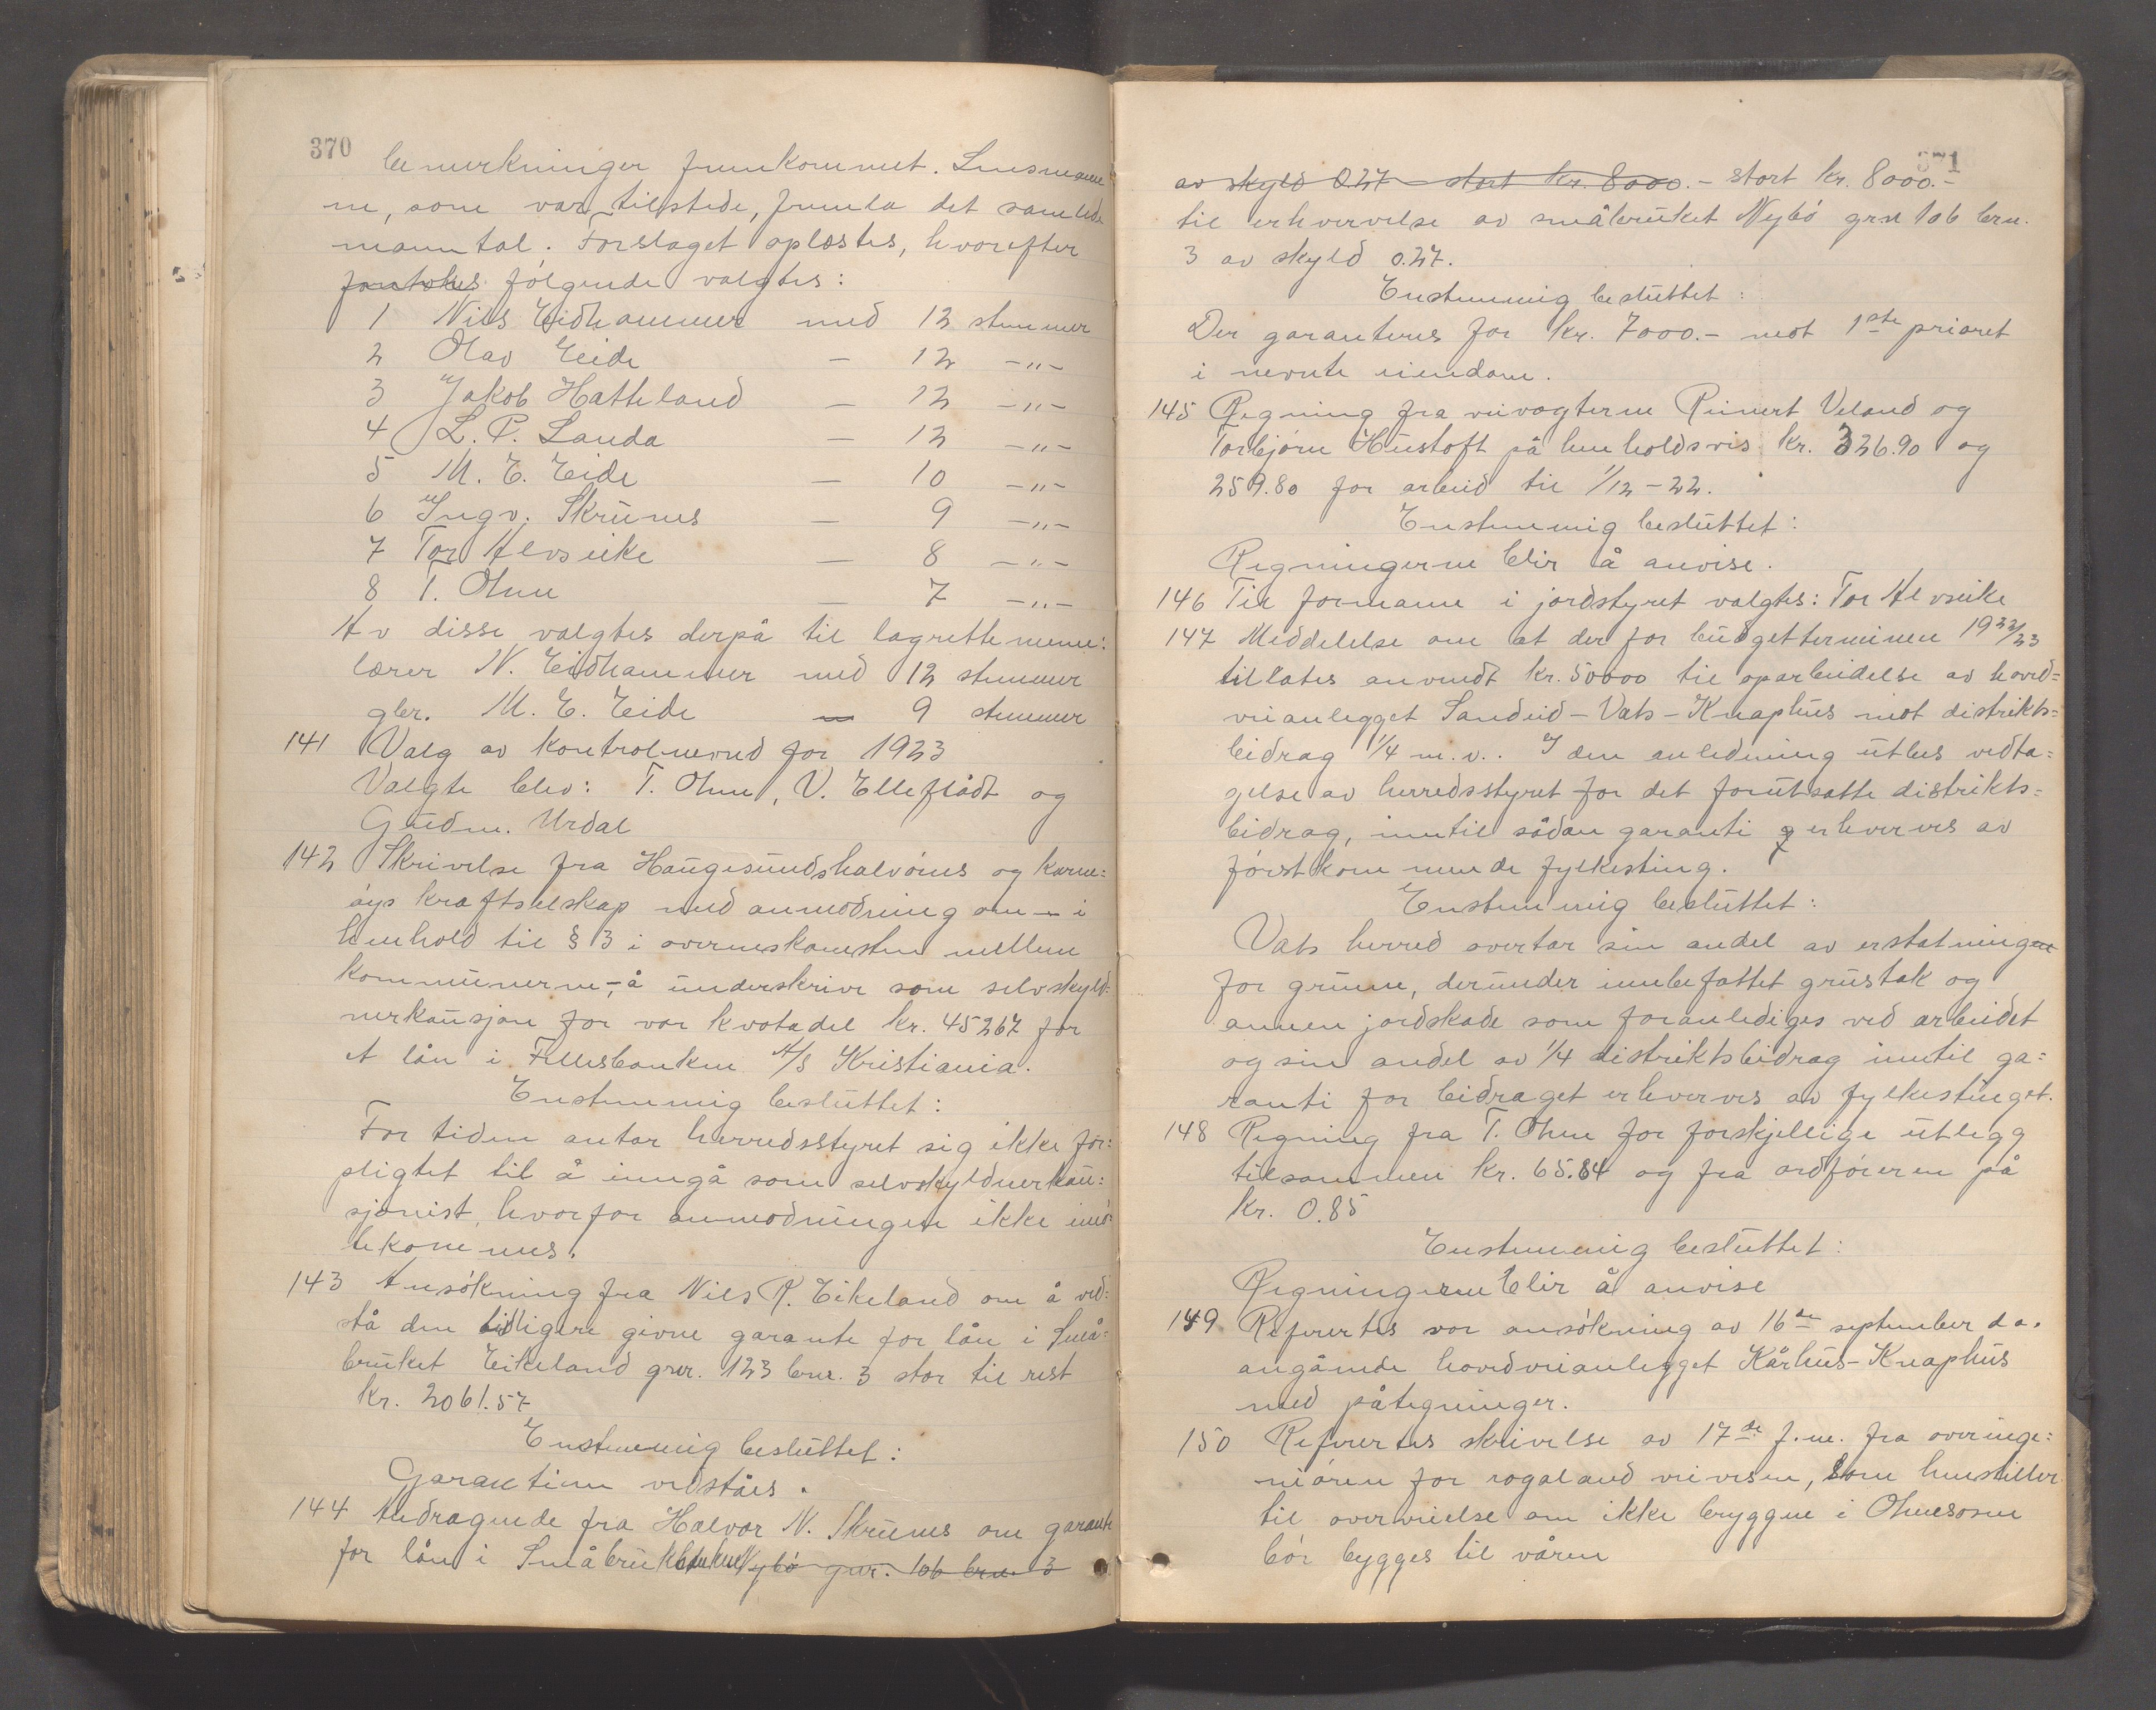 370
bemerkninger fremkommet. Lensmanne
ne, som var tilstede, fremla det samlede
manntal. Forslaget oplæstes, hvorefter
følgende valgtes:
1 Nils Eidhammer med 12 stemmer
2 Olav Eide — 12 —"—
3 Jakob Hatteland — 12 —"—
4 L. P. Landa — 12 —"—
5 M. E. Eide — 10 —"—
6 Ingv. Skrunes — 9 —"—
7 Tor Alvseike — 8 —"—
8 T. Ohm — 7 —"—
Av disse valgtes derpå til lagrettemenn:
lærer N. Eidhammer med 12 stemmer
gbr. M. E. Eide — 9 stemmer
141 Valg av kontrolnevnd for 1923
Valgte blev: T. Ohm, V. Elleflådt og
Gudm. Urdal
142 Skrivelse fra Haugesundshalvøens og Karm=
øys kraftselskap med anmodning om — i
henhold til § 3 i overenskomsten mellem
kommunerne -, å underskrive som selvskyld-
nerkausjon for vor kvotadel kr. 45267 for
et lån i Fellesbanken A/S Kristiania.
Enstemmig besluttet:
For tiden antar herredsstyret sig ikke for=
pligtet til å inngå som selvskyldnerkau=
sjonist, hvorfor anmodningen ikke imø=
tekommes.
143 Ansøkning fra Nils R. Eikeland om å ved=
stå den tidligere givne garante for lån i Små=
bruket Eikeland gnr. 123 bnr. 3 stor til rest
kr. 2061.57
Enstemmig besluttet:
Garantien vedståes.
144 Andragende fra Halvor N. Skrunes om garante
for lån i Småbrukbanken Nybø gnr. 106 brn. 3
371
av skyld 0.27 stort kr. 8000.- stort kr. 8000.-
til erhvervelse av småbruket Nybø grn 106 brn.
3 av skyld 0.27.
Enstemmig besluttet:
Der garanteres for kr. 7000.- mot 1ste prioret
i nevnte eiendom.
145 Regning fra veivogterne Reinert Veland og
Torbjørn Hustoft på henholdsvis kr. 326.90 og
259.80 for arbeid til 1/12-22.
Enstemmig besluttet:
Regningerne blir å anvise.
146 Til formann i jordstyret valgtes: Tor Alvseike
147 Meddelelse om at der for budgetterminen 1922/23
tillates anvendt kr. 50000 til oparbeidelse av hoved=
veianlegget Sandeid-Vats-Knaphus mot distrikts=
bidrag 1/4 m.v.. I den anledning utbes vedta=
gelse av herredsstyret for det forutsatte distrikts=
bidrag, inntil sådan garanti erhverves av
førstkommende fylkesting.
Enstemmig besluttet:
Vats herred overtar sin andel av erstatningene
for grunn, derunder innbefattet grustak og
annen jordskade som foranlediges ved arbeidet
og sin andel av 1/4 distriktsbidrag inntil ga=
ranti for bidraget erhverves av fylkestinget.
148 Regning fra T. Ohm for forskjellige utlegg
tilsammen kr. 65.84 og fra ordføreren på
kr. 0.85
Enstemmig besluttet:
Regningerne blir å anvise
149 Refertes vor ansøkning av 16de september d.a.
angående hovedveianlegget Kårhus-Knaphus
med påtegninger.
150 Refertes skrivelse av 17de f.m. fra overinge=
niøren for rogaland veivesen, som henstiller
til overveielse om ikke bryggen i Ohmsosen
bør bygges til våren